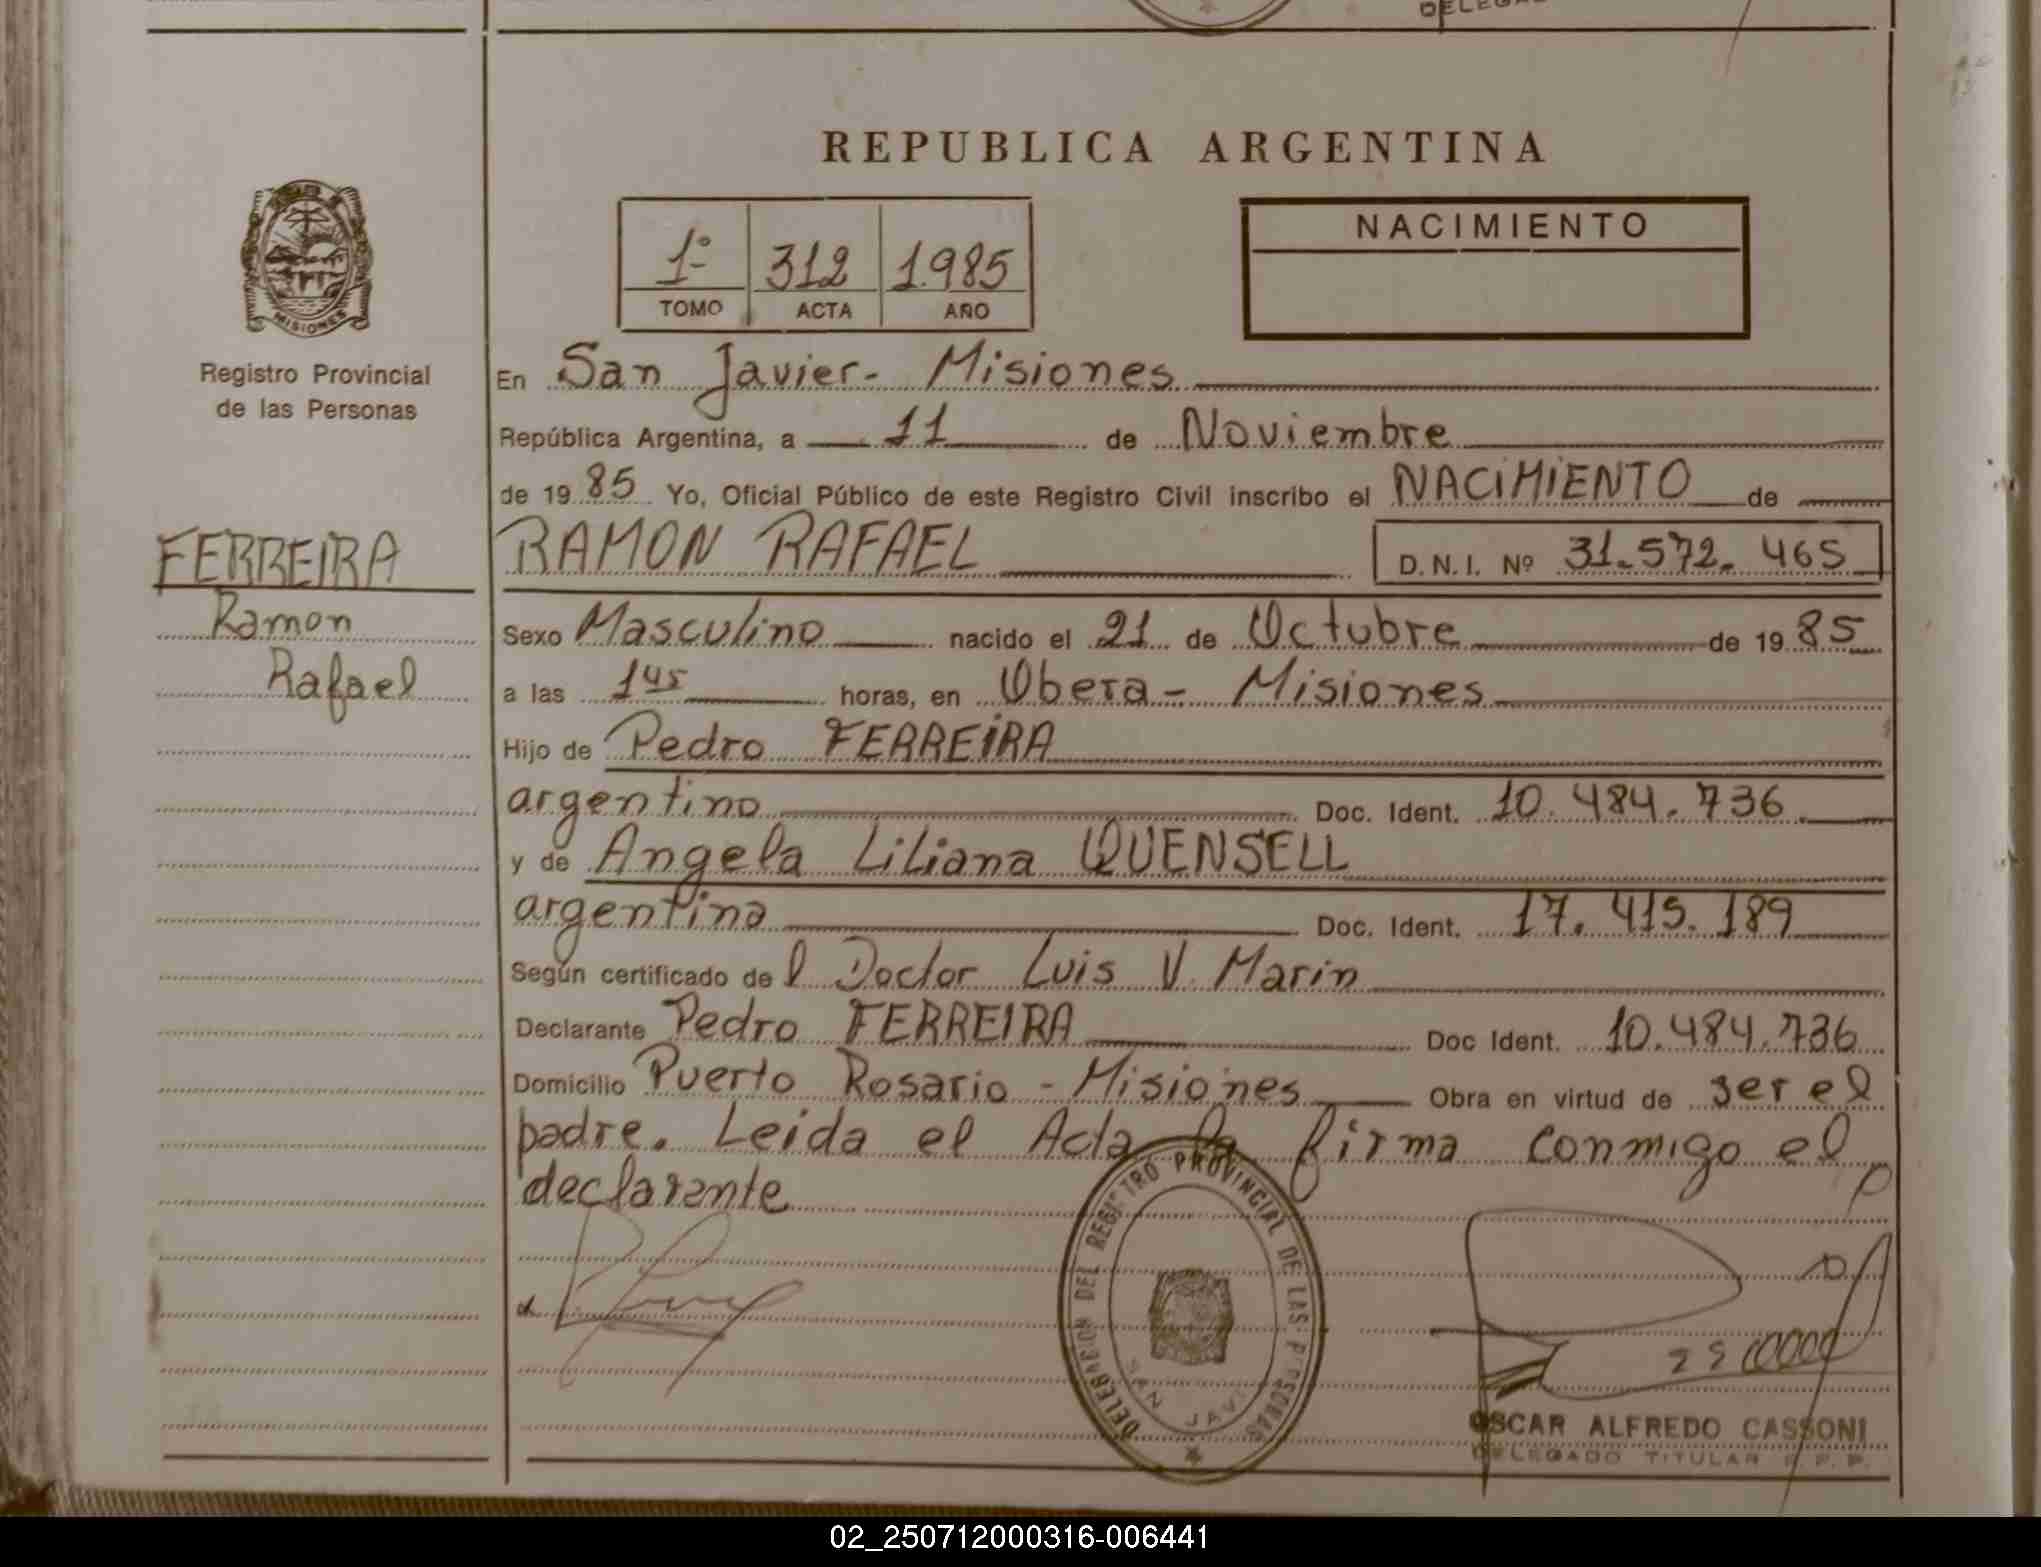 DELEGAD
REPUBLICA ARGENTINA
MISIONES
Registro Provincial
de las Personas
1º 312 1.985
TOMO ACTA AÑO
NACIMIENTO
En San Javier- Misiones
República Argentina, a 11 de Noviembre
de 1985 Yo, Oficial Público de este Registro Civil inscribo el NACIMIENTO de
FERREIRA
Ramon
Rafael
RAMON RAFAEL D.N.I. Nº 31.572.465
Sexo Masculino nacido el 21 de Octubre de 1985
a las 1 45 horas, en Obera- Misiones
Hijo de Pedro FERREIRA
argentino Doc. Ident. 10.484.736.
y de Angela Liliana QUENSELL
argentina Doc. Ident. 17.415.189
Según certificado del Doctor Luis V. Marin
Declarante Pedro FERREIRA Doc Ident. 10.484.736
Domicilio Puerto Rosario - Misiones Obra en virtud de ser el
padre. Leida el Acta la firma conmigo el
declarante
DELEGACION DEL REGISTRO PROVINCIAL DE LAS PERSONAS
SAN JAVI
OSCAR ALFREDO CASSONI
DELEGADO TITULAR R.P.P.
02_250712000316-006441